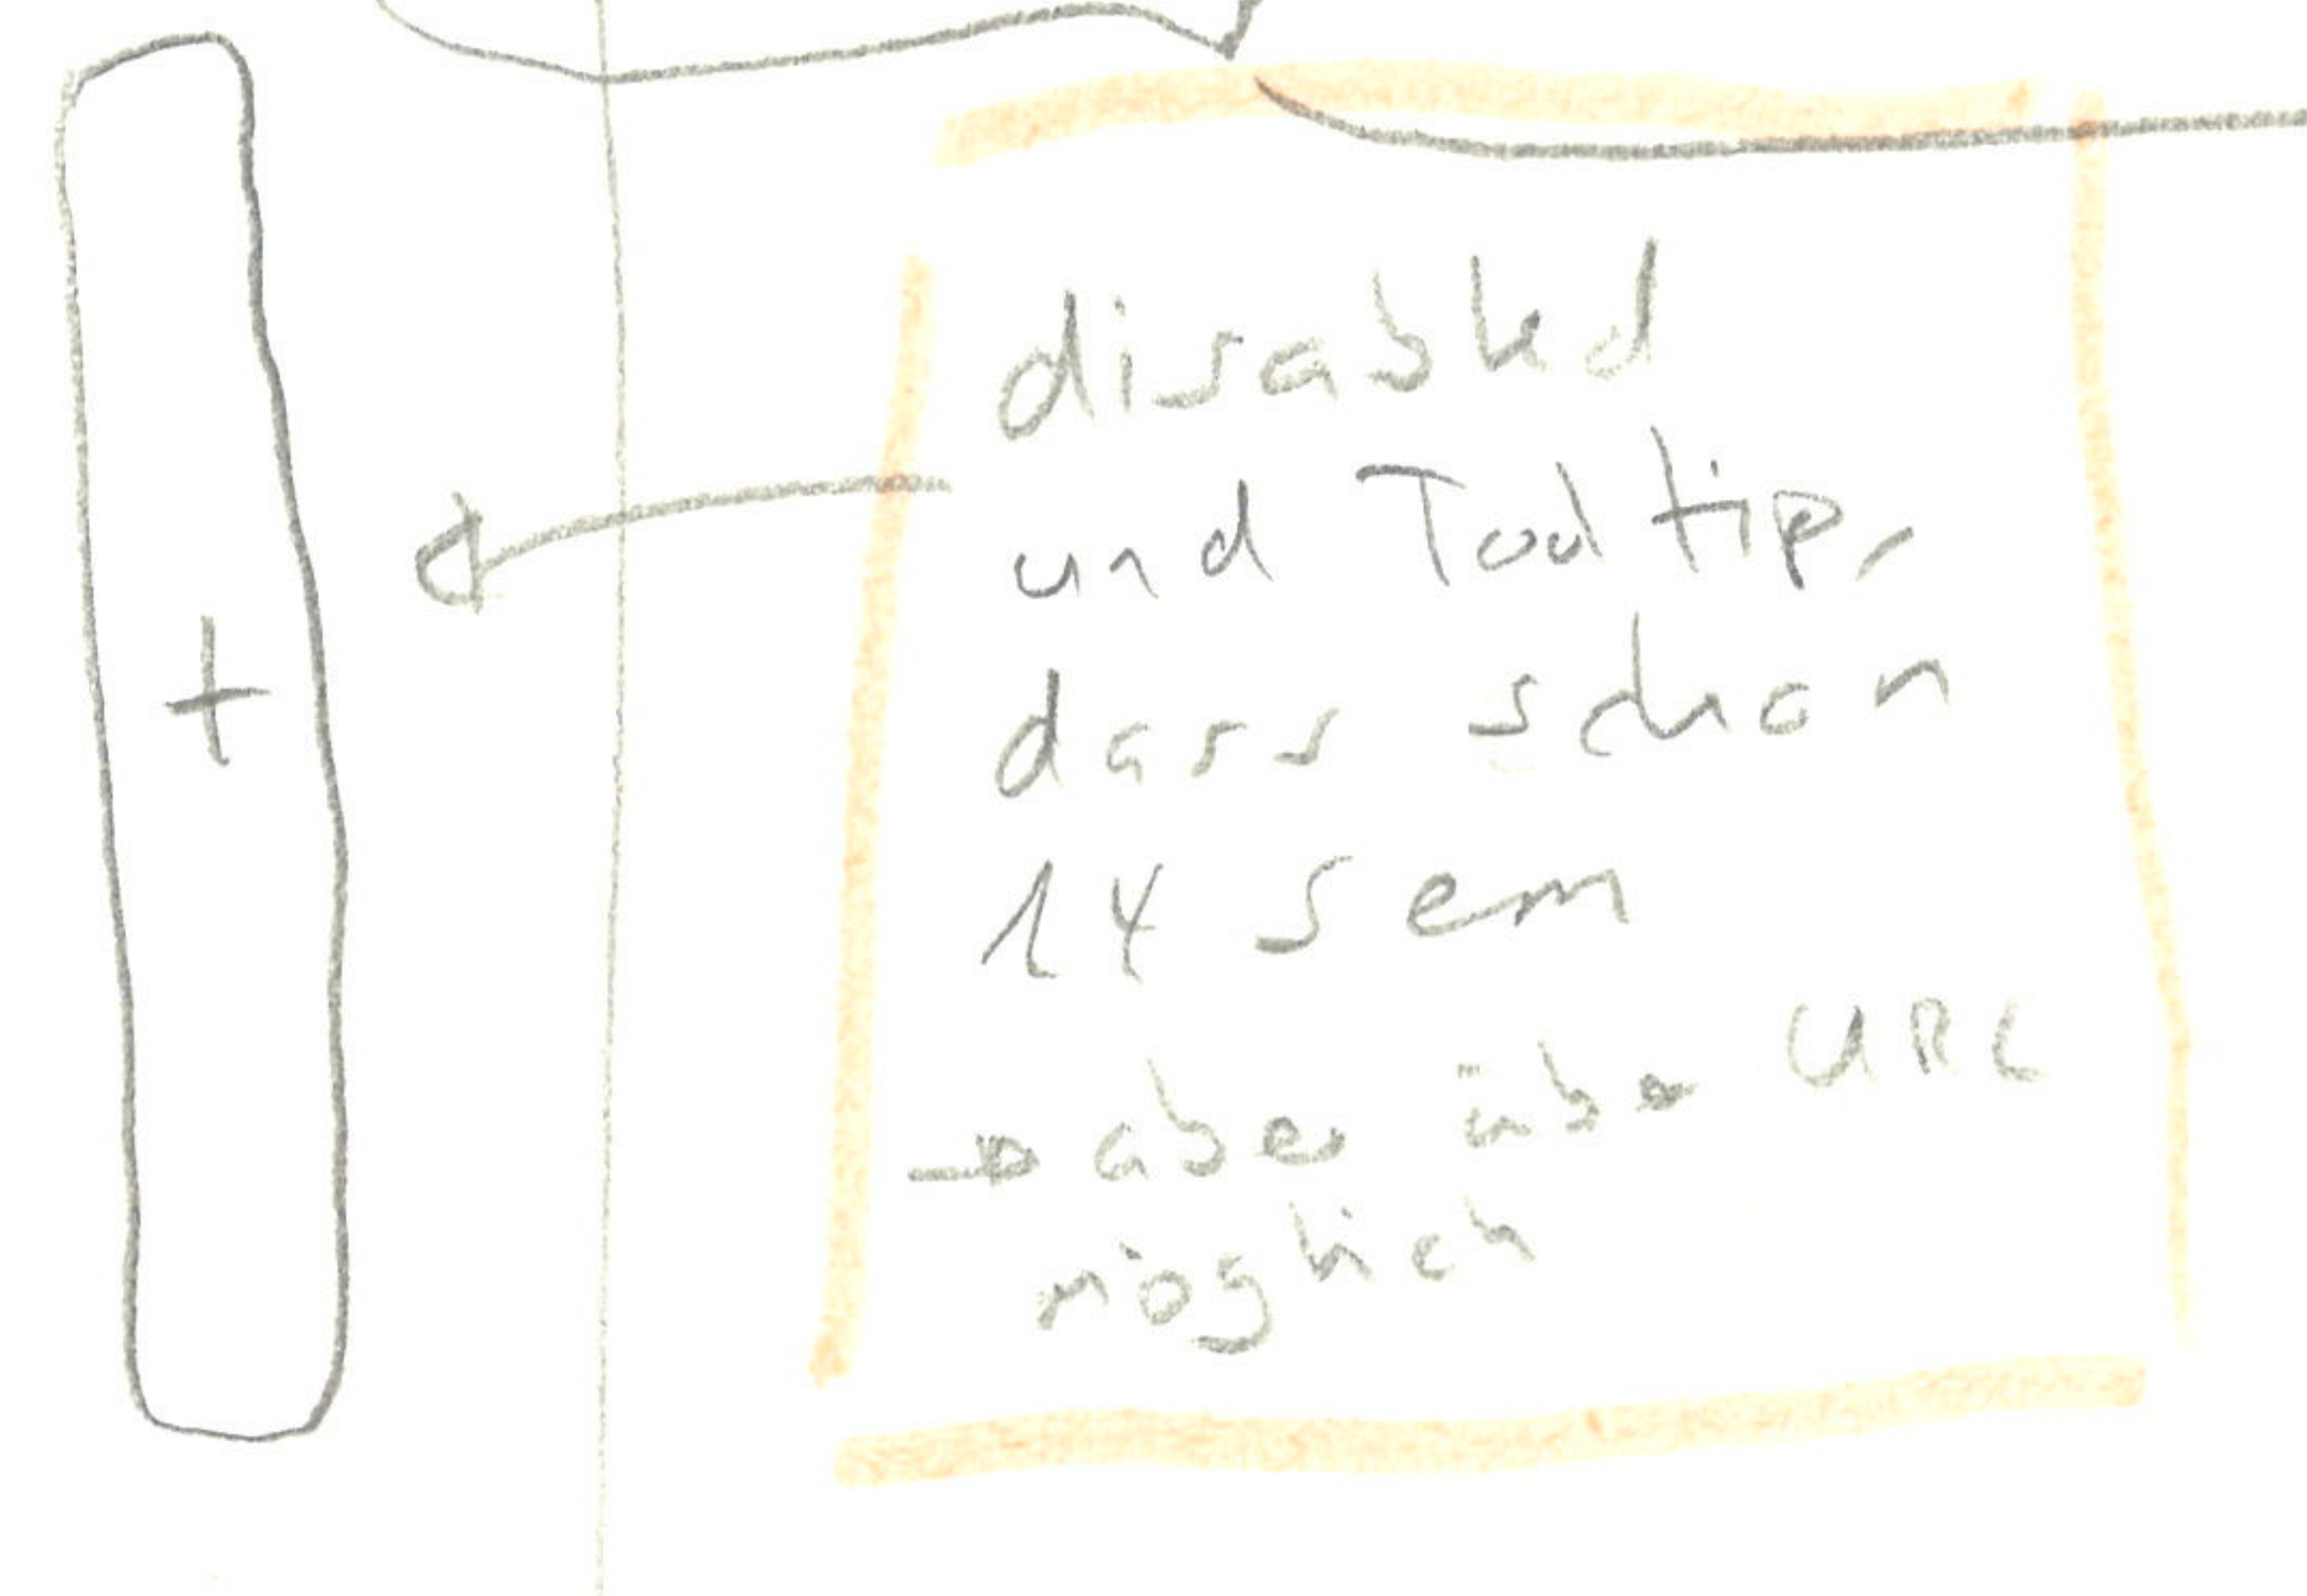 +
disabled
und Tooltip,
dass schon
14 Sem
→ aber über URL
möglich